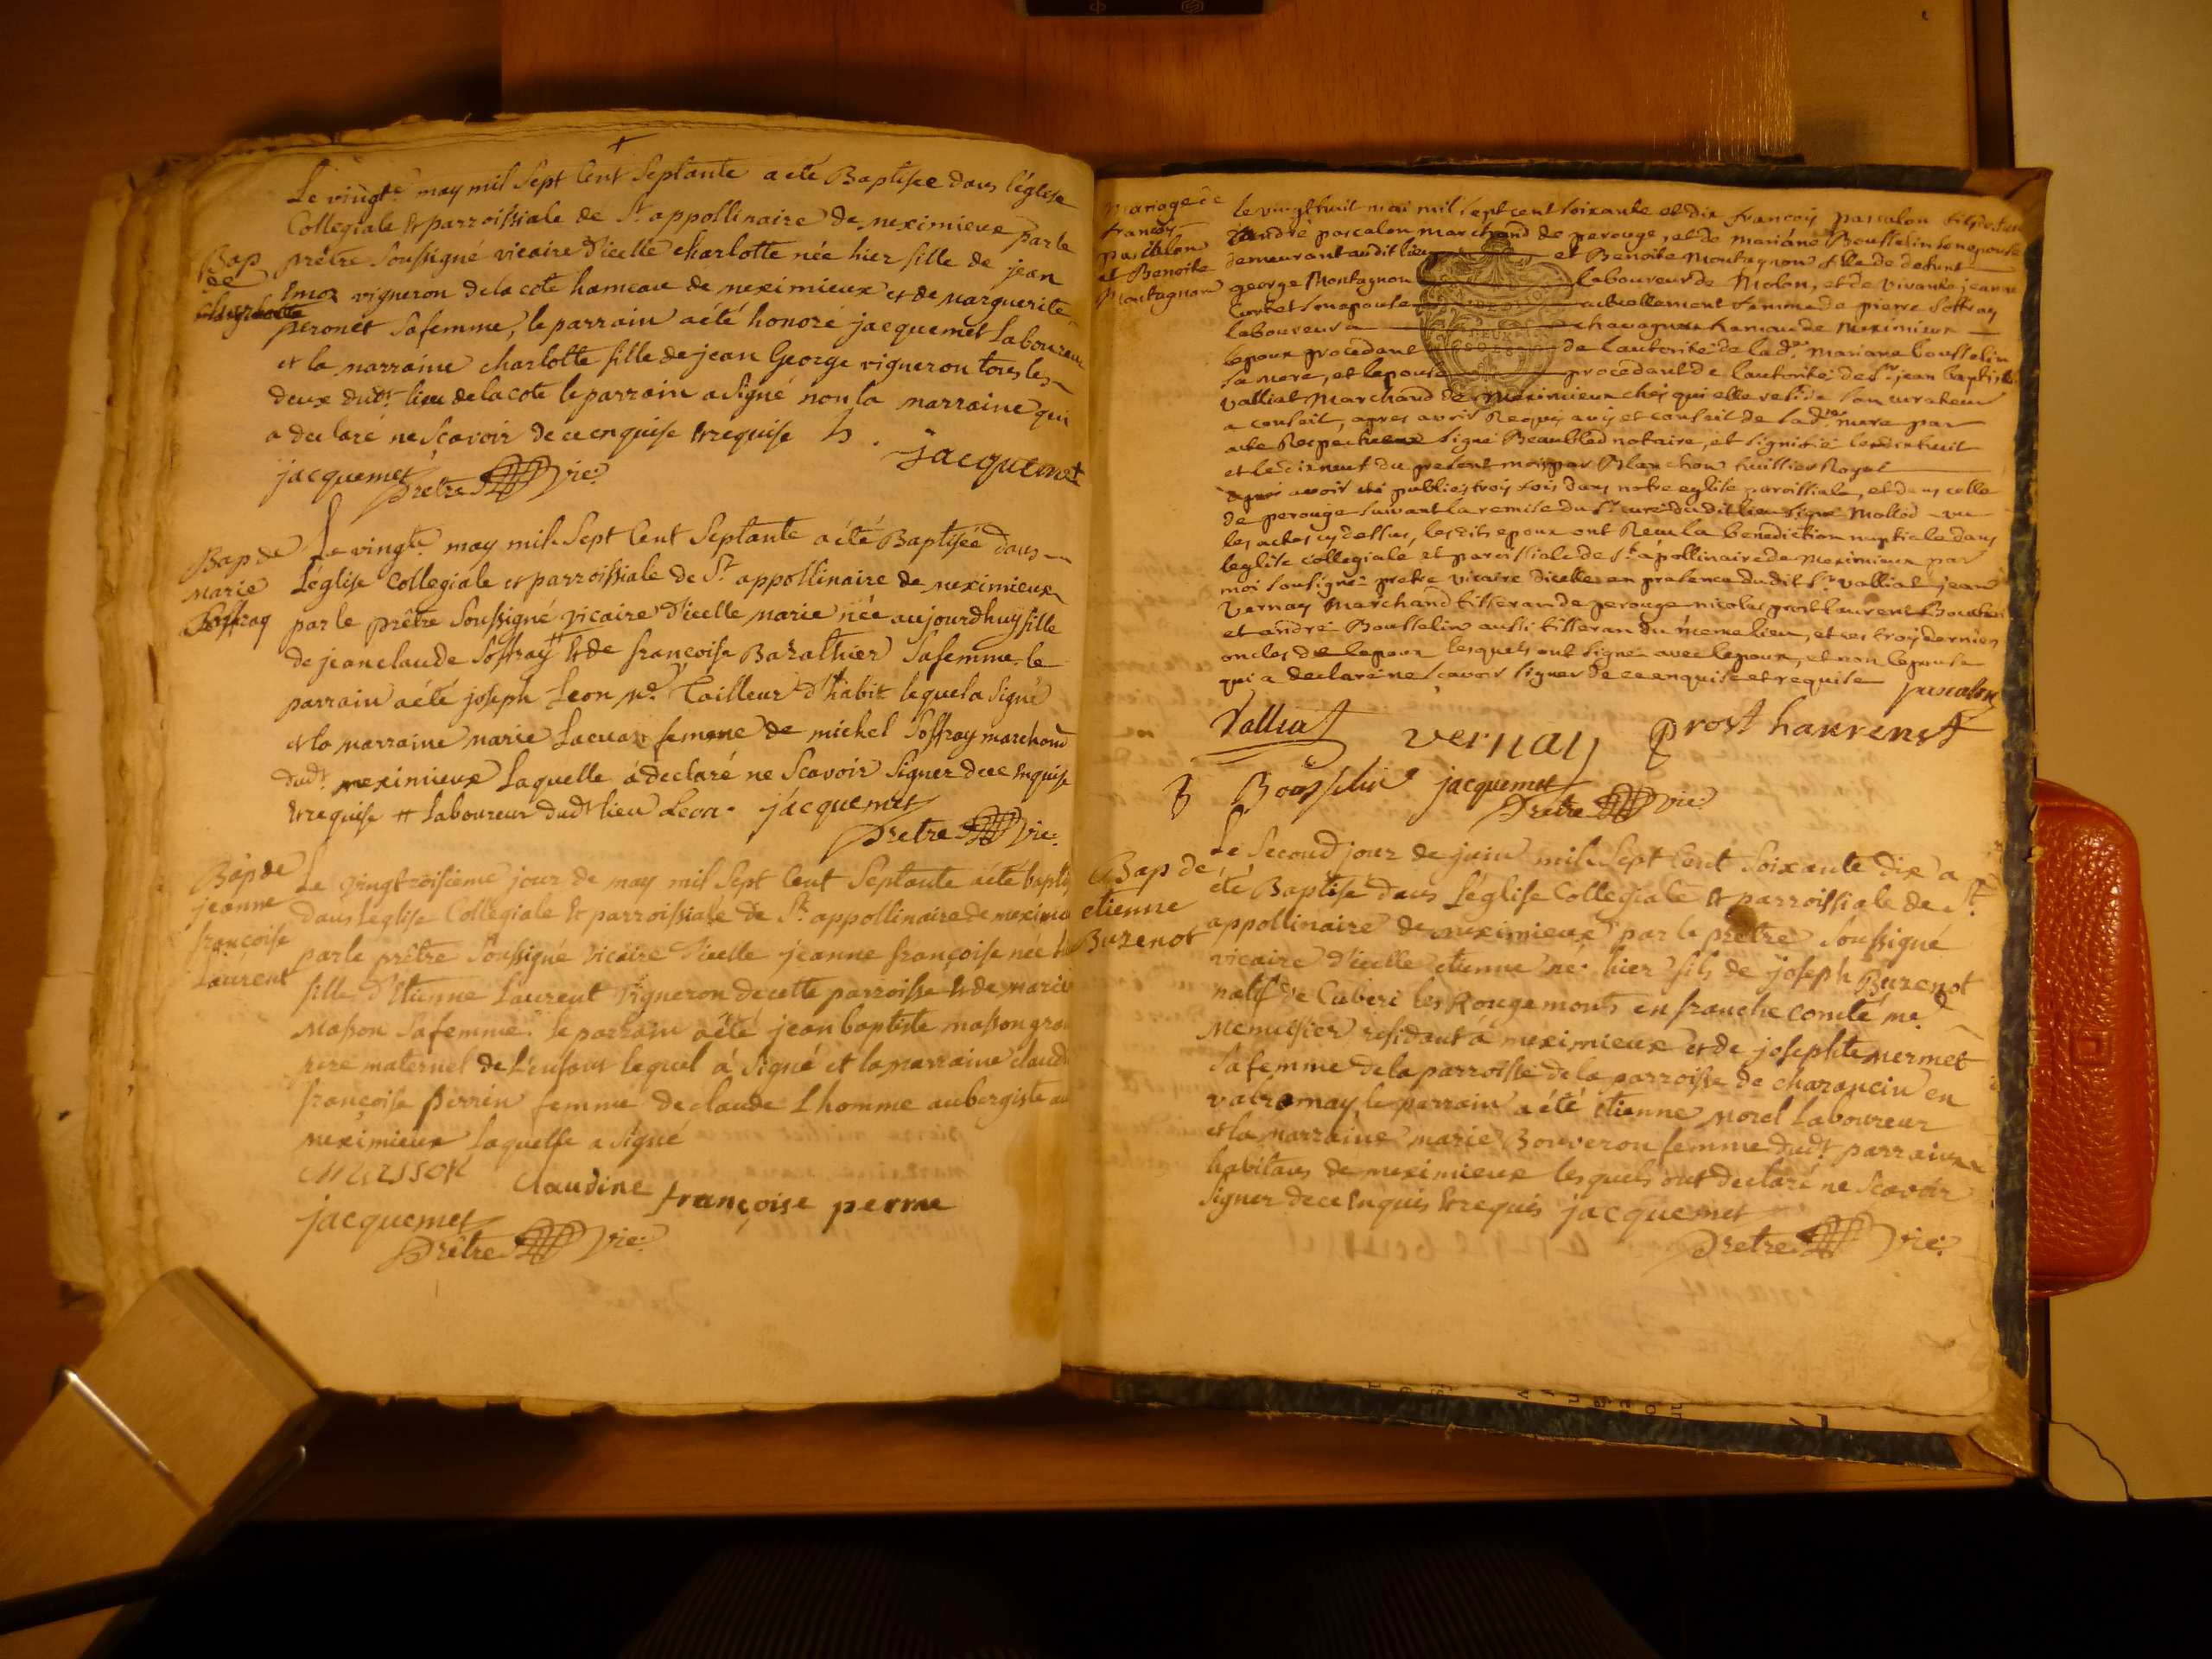 Le vingt.e may mil Sept Cent Septante a été Baptisée dans l'église
Collegiale & parroissiale de S.t appollinaire de meximieux par le
prêtre Soussigné vicaire d'icelle charlotte née hier fille de jean
vigneron de la cote hameau de meximieux et de marguerite
peronet sa femme, le parrain a été honoré jacquemet Laboureur
et la marraine charlotte fille de jean George vigneron tous les
deux dud.t lieu de la cote le parrain a Signé non la marraine qui
a declaré ne Scavoir de ce enquise & requise
jacquemet
jacquemet
Prêtre vic:
Bap
de
charlotte
Bap de
marie
Soffray
Le vingt.e may mil Sept Cent Septante a été Baptisée dans
L'église Collegiale et parroissiale de S.t appollinaire de meximieux
par le prêtre Soussigné vicaire d'icelle marie née aujourdhuy fille
de jean claude Soffray # & de françoise Barathier Sa femme. le
parrain a été joseph Leon m.e Tailleur d'habit lequel a Signé
et la marraine marie femme de michel Soffray marchand
dud.t meximieux Laquelle a declaré ne Scavoir Signer de ce enquise
& requise # Laboureur dud.t lieu Leon. jacquemet
Prêtre vic:
Bap de
jeanne
françoise
Laurent
Le vingtroisieme jour de may mil Sept Cent Septante a été
dans l'église Collegiale & parroissiale de S.t appollinaire de
par le prêtre Soussigné vicaire d'icelle jeanne françoise née
fille d'Etienne Laurent vigneron de cette parroisse & de marie
Masson Sa femme. le parrain a été jean baptiste masson
pere maternel de L'enfant lequel à Signé et la marraine
françoise perrin femme de claude Lhomme aubergiste
meximieux Laquelle a Signé
masson claudine françoise perrine
jacquemet
Prêtre vic:
Mariage de
françois
pascalon
et Benoite
Montagnon
le vingt huit mai mil sept cent soixante et dix françois pascalon
d'andré pascalon marchand de perouge, et de mariane Bousselin son epouse
demeurant audit lieu et Benoite Montagnon fille de defunt
george Montagnon laboureur de Molon, et de vivante jeanne
son epouse actuellement femme de pierre Soffray
laboureur a hamau de Meximieux
lepoux procedant de lautorité de lad.te Mariane bousselin
sa mere, et lepouse procedant de lautorité de S.r jean baptiste
valliat Marchand de Meximieux chez qui elle reside son curateur
a conseil, apres avoir Requis avis et conseil de lad.te mere par
acte Respectueux signé notaire, et signifié
et le dixneuf du present mois par huissier Royal
apres avoir été publiés trois fois dans notre eglise paroissiale, et dans celle
de perouge suivant la remise du S.r curé dudit lieu signé vu
les actes cy dessus, lesdits epoux ont Recu la benediction nuptiale dans
leglise collegiale et paroissiale de S.t apollinaire de Meximieux par
moi soussigné pretre vicaire dicelle en presence dudit S.r valliat, jean
Vernay Marchand tisseran de perouge nicolas prost laurent
et andré Bousselin aussi tisseran du meme lieu, et les trois derniers
oncles de lepoux lesquels ont signé avec lepoux, et non lepouse
qui a declaré ne scavoir signer de ce enquise et requise pascalon
Valliat vernay prost laurenst
Bousselin jacquemet
Prêtre vic:
Bap de
etienne
Buzenot
Le Second jour de juin mil Sept Cent Soixante dix a
été Baptisé dans L'église Collegiale & parroissiale de S.t
appollinaire de meximieux par le prêtre Soussigné
vicaire d'icelle etienne né hier fils de joseph Buzenot
natif de Cuberi les Rougemonts en franche comté m.e
Menuisier residant à meximieux et de josephte mermet
Sa femme de la parroisse de la parroisse de charancin en
valromay, le parrain a été etienne morel Laboureur
et la marraine marie Bouveron femme dud.t parrain
habitans de meximieux lesquels ont declaré ne Scavoir
Signer de ce enquis & requis jacquemet
Prêtre vic: